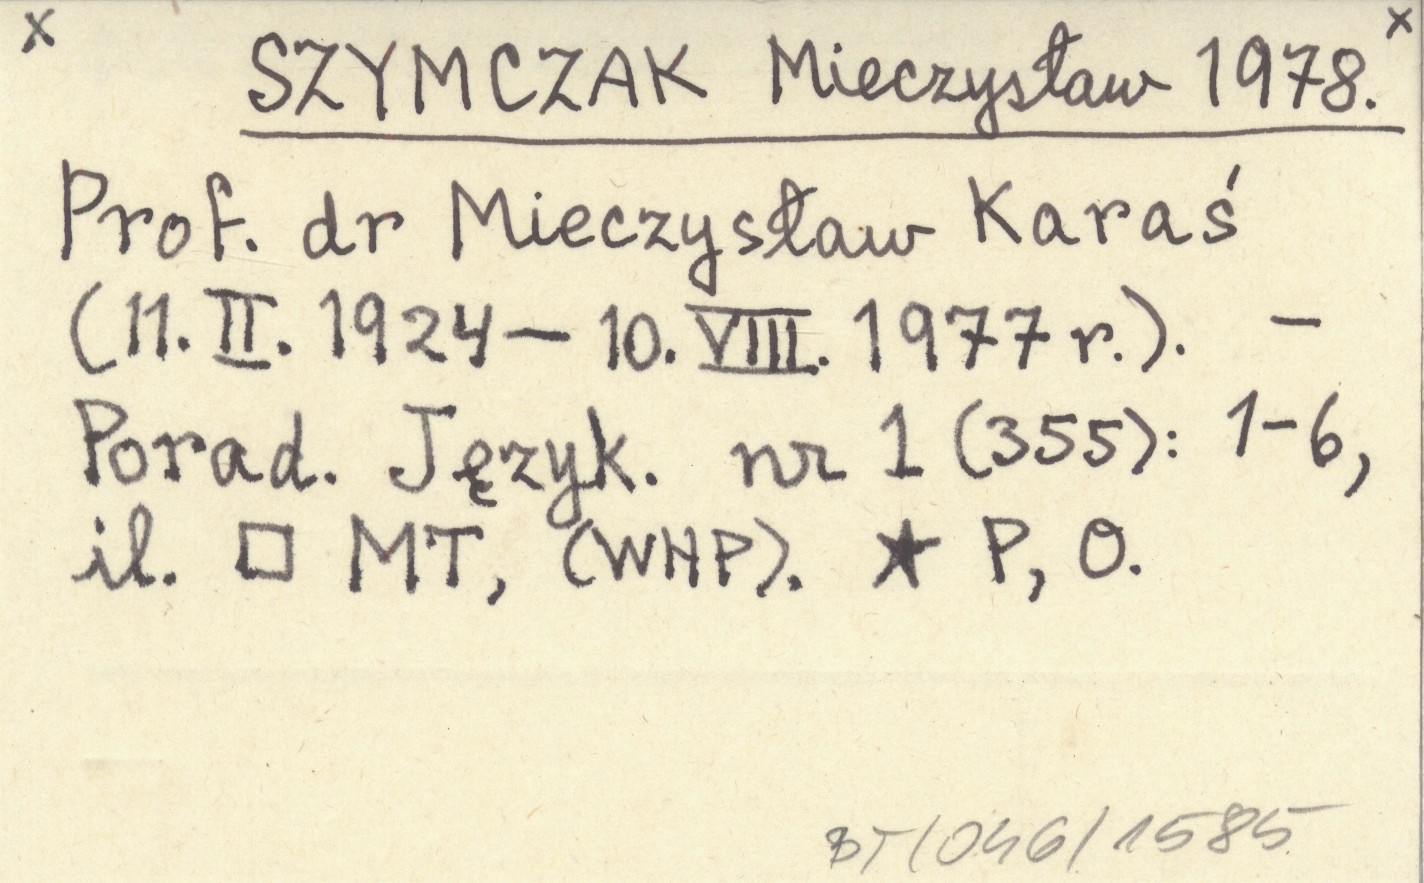 x x
SZYMCZAK Mieczysław 1978.
Prof. dr Mieczysław Karaś
(11. II. 1924 – 10. VIII. 1977 r.). –
Porad. Język. nr 1 (355): 1-6,
il. □ MT, (WHP). ★ P, O.
BT/046/1585